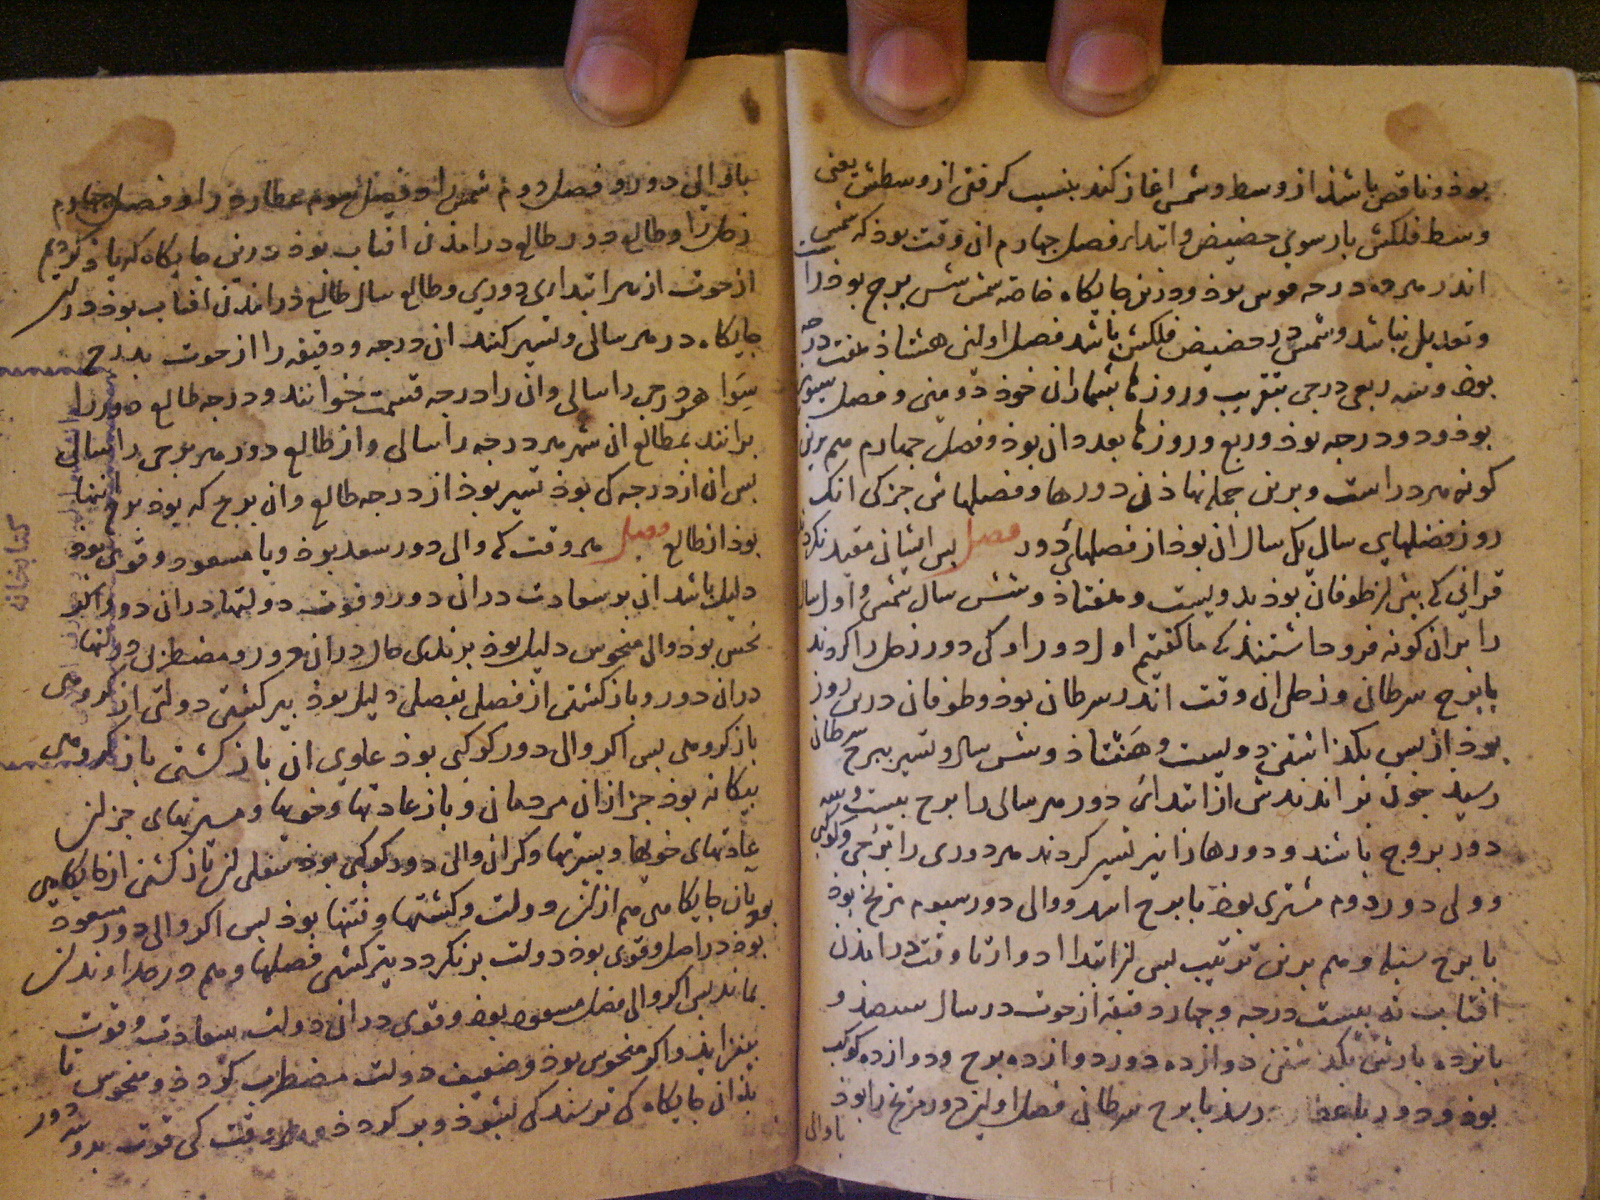 بوذ و ناقص باشذ از وسط و شمس اغاز کند بنسبب کرفتن از وسطش یعنی
وسط فلکش بارسوی حضیض و ابتداء فصل چهارم ان وقت بوذ که شمس
اندر درجه قوس بوذ و درین جایکاه خاصه شمس شش برج بوذ راست
و تعدیل نباشد و شمس در حضیض فلکش باشد فصل اولین هشتاذ هفت درجه
بوذ و سه ربعی درجی بتقریب و روزها بشماران خوذ دومین و فصل سیوم
بوذ و دو درجه بوذ و ربع و روزها بعددان بوذ و فصل چهارم هم برین
کونه هر دو راست و برین جمله نهاذن دورها و فصلهاش جزکی انک
روز فصلهای سال یک سال ان بوذ از فصلهای دور فصل بس ایشان مقید نکردند
قرانی کی بیش از طوفان بوذ بدویست و هفتاذ و شش سال شمسی و اول سال
را بران کونه فرو داشتند کی ما کفتیم اول دور او کی دور زحل را کردند
با برج سرطان و زحل ان وقت اندر سرطان بوذ و طوفان درین روز
بوذ از بس بکذاشتن دویست و هفتاذ و شش سال و تسیر ببرج سرطان
رسید جون براندندش از ابتدای دور هر سالی را برج بیست و سه
دور بروج باشند و دورها را نیز تسیر کردند هر دوری را برجی و کوکبی
و ولی دور دوم مشتری بوذ با برج اسد و والی دور سیوم مریخ بوذ
با برج سنبله و هم برین ترتیب بس از ابتدا ادوار تا وقت درامذن
افتاب به بیست درجه و جهار دقیقه از حوت در سال سیصد و
بانزده بارسی بکذشتن دوازده دور دوازده برج و دوازده کوکب
بوذ و دور با رسد با برج سرطان فصل اولین دور مریخ را بوذ
با والی
با والی دور و فصل دوم شمس را و فصل سوم عطارد را و فصل چهارم
زحل را و طالع دور طالع درامذن افتاب بوذ درین جایکاه که یاذ کردیم
از حوت از بهر ابتدای دوری و طالع سال طالع درامذن افتاب بوذ در این
جایکاه در هر سالی و تسیر کنند ان درجه و دقیقه را از حوت بدرج
سوا هر درجی را سالی و ان را درجه قسمت خوانند و درجه طالع دور را
برانند بمطالع ان شهر هر درجه را سالی و از طالع دور هر برجی را سالی
بس ان از درجه کی بوذ تسیر بوذ از درجه طالع و ان برج که بوذ برج انتها
بوذ از طالع فصل هر وقت که والی دور سعد بوذ و یا مسعود و قوی بوذ
دلیل باشد ان بر سعادت دران دور و قوت دولتها دران دور و اکر
نحس بوذ والی منحوس دلیل بوذ بر بدی حال دران دور و مضطرب دولتها
دران دور و بازکشتن از فصلی بفصلی دلیل بوذ بر کشتن دولتی از کروهی
باز کروهی بس اکر والی دور کوکبی بوذ علوی ان بازکشتن باز کروهی
بیکانه بوذ جز از ان مردمان و باز عادتها و خوها و سیرتهای جز از
عادتهای خویها و سیرتها و کران والی دور کوکبی بوذ سفلی ان بازکشتن از جایکاهی
بوذ بان جایکاهی هم از ان دولت و کشتنها و فتنها بوذ بس اکر والی دور مسعود
بوذ در اصل و قوی بوذ دولت برنکردد بتر کشتن فصلها و هم در خداوندان
بماند بس اکر والی فصل مسعود بوذ و قوی دران دولت سعادت و قوت
بیفزاید و اکر منحوس بوذ و ضعیف دولت مضطرب کردد و منحوس تا
بذان جایکاه کی ترسند کی بشوذ و بر کردد وقت کی قوت دور
کتابخانه